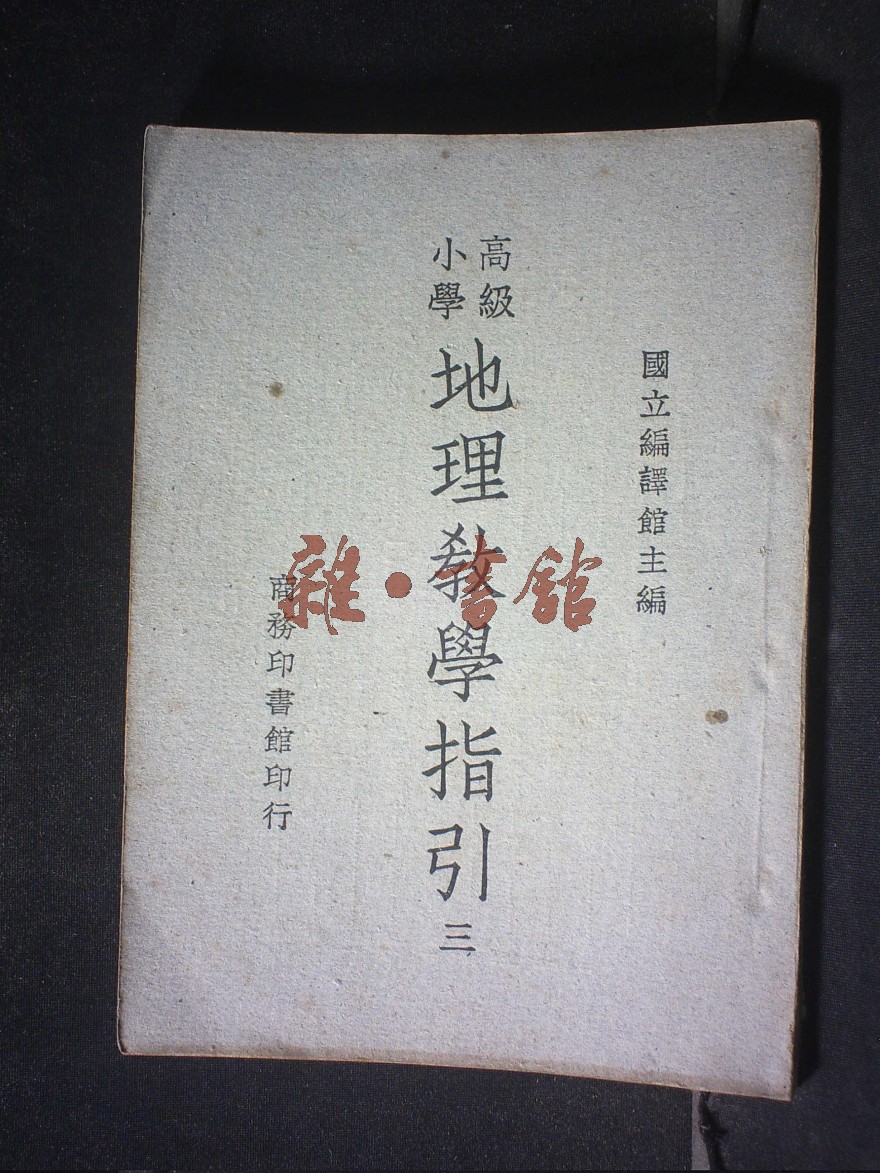 國立編譯館主編
高級
小學
地理教學指引 三
商務印書館印行
雜·書館